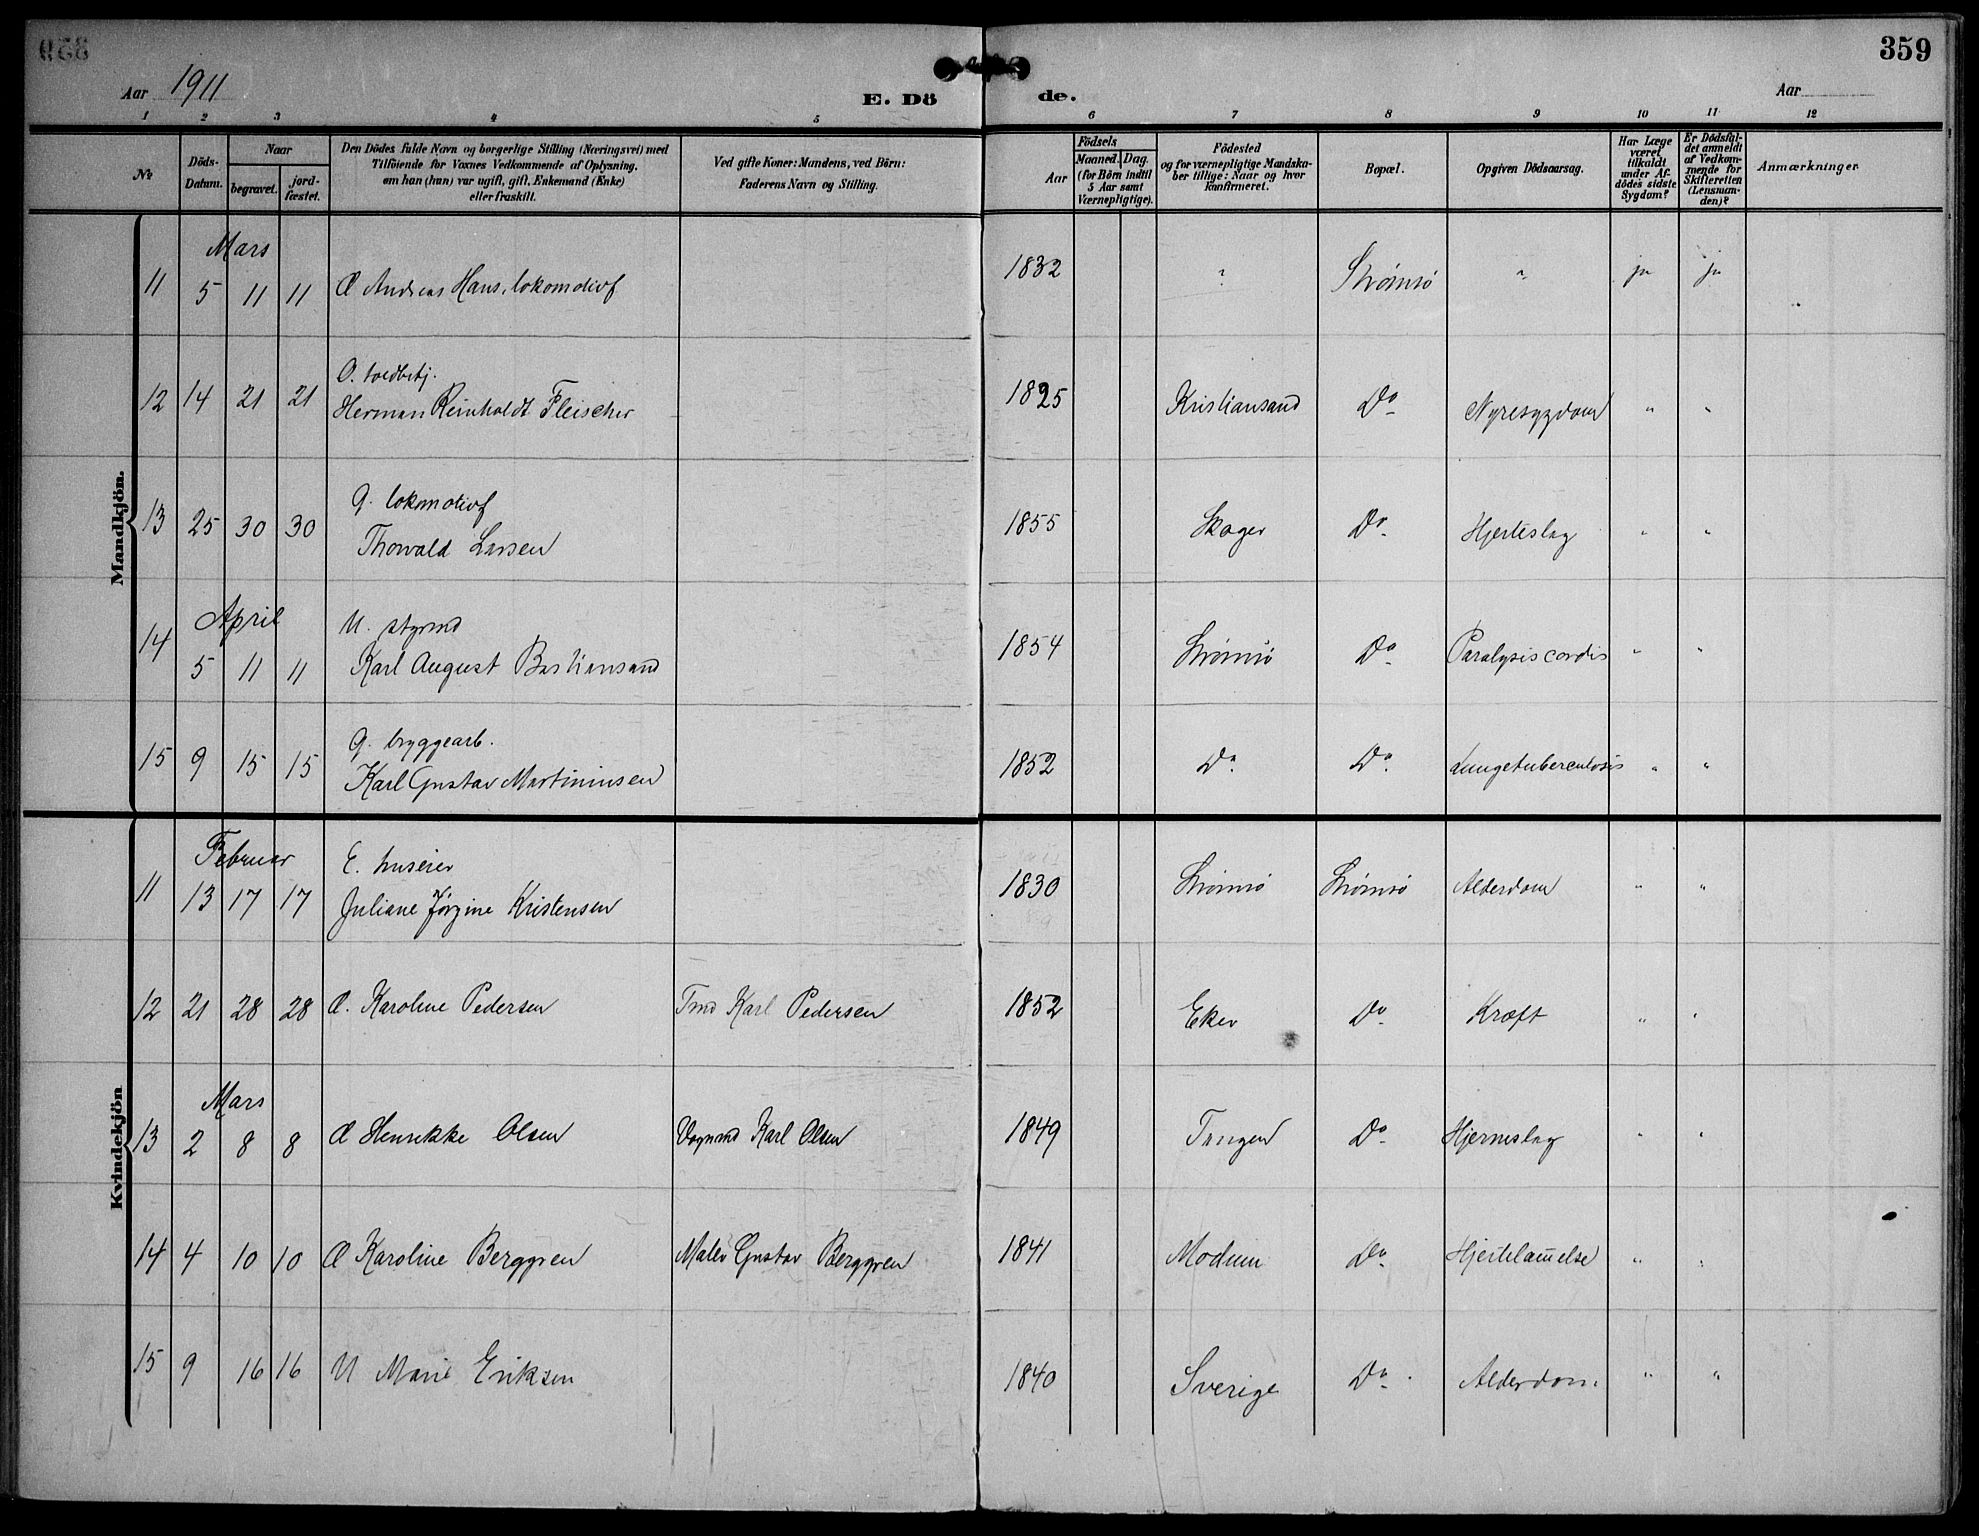 359
Aar 1911
E. Dö de.
Aar
1 2 3 4 5 6 7 8 9 10 11 12
No
Döds-Datum.
Naar
begravet.
jord-fæstet.
Den Dödes fulde Navn og borgerlige Stilling (Næringsvei) med
Tilföiende for Voxnes Vedkommende af Oplysning,
om han (hun) var ugift, gift, Enkemand (Enke)
eller fraskilt.
Ved gifte Koner: Mandens, ved Börn:
Faderens Navn og Stilling.
Födsels
Aar
Maaned. Dag.
(for Börn indtil
5 Aar samt
Værnepligtige).
Födested
og for værnepligtige Mandska-
ber tillige: Naar og hvor
konfirmeret.
Bopæl.
Opgiven Dödsaarsag.
Har Læge
været
tilkaldt
under Af-
dödes sidste
Sygdom?
Er Dödsfal-
det anmeldt
af Vedkom-
mende for
Skifteretten
(Lensman-
den)?
Anmærkninger
Mandkjön.
Mars
11 5 11 11 Andreas Hans, lokomotivf 1832 " Strømsø " ja ja
O. toldbetj.
12 14 21 21 Herman Reinholdt Fleischer 1825 Kristiansand Do Nyresygdom " "
G. lokomotivf
13 25 30 30 Thorvald Larsen 1855 Skoger Do Hjerteslag " "
April
U. styrmd
14 5 11 11 Karl August Bastiansand 1854 Strømsø Do Paralysis cordis " "
G. bryggearb.
15 9 15 15 Karl Gustav Martiniusen 1852 Do Do Lungetuberculosis " "
Kvindekjön
Februar
E. huseier
11 13 17 17 Juliane Jørgine Kristensen 1830 Strømsø Strømsø Alderdom " "
12 21 28 28 Karoline Pedersen Tmd Karl Pedersen 1852 Eker Do Kræft " "
Mars
13 2 8 8 Henrikke Olsen Vognmd Karl Olsen 1849 Tangen Do Hjerneslag " "
14 4 10 10 Karoline Berggren Maler Gustav Berggren 1841 Modum Do Hjertelam̄else " "
15 9 16 16 U Marie Eriksen 1840 Sverige Do Alderdom. " "